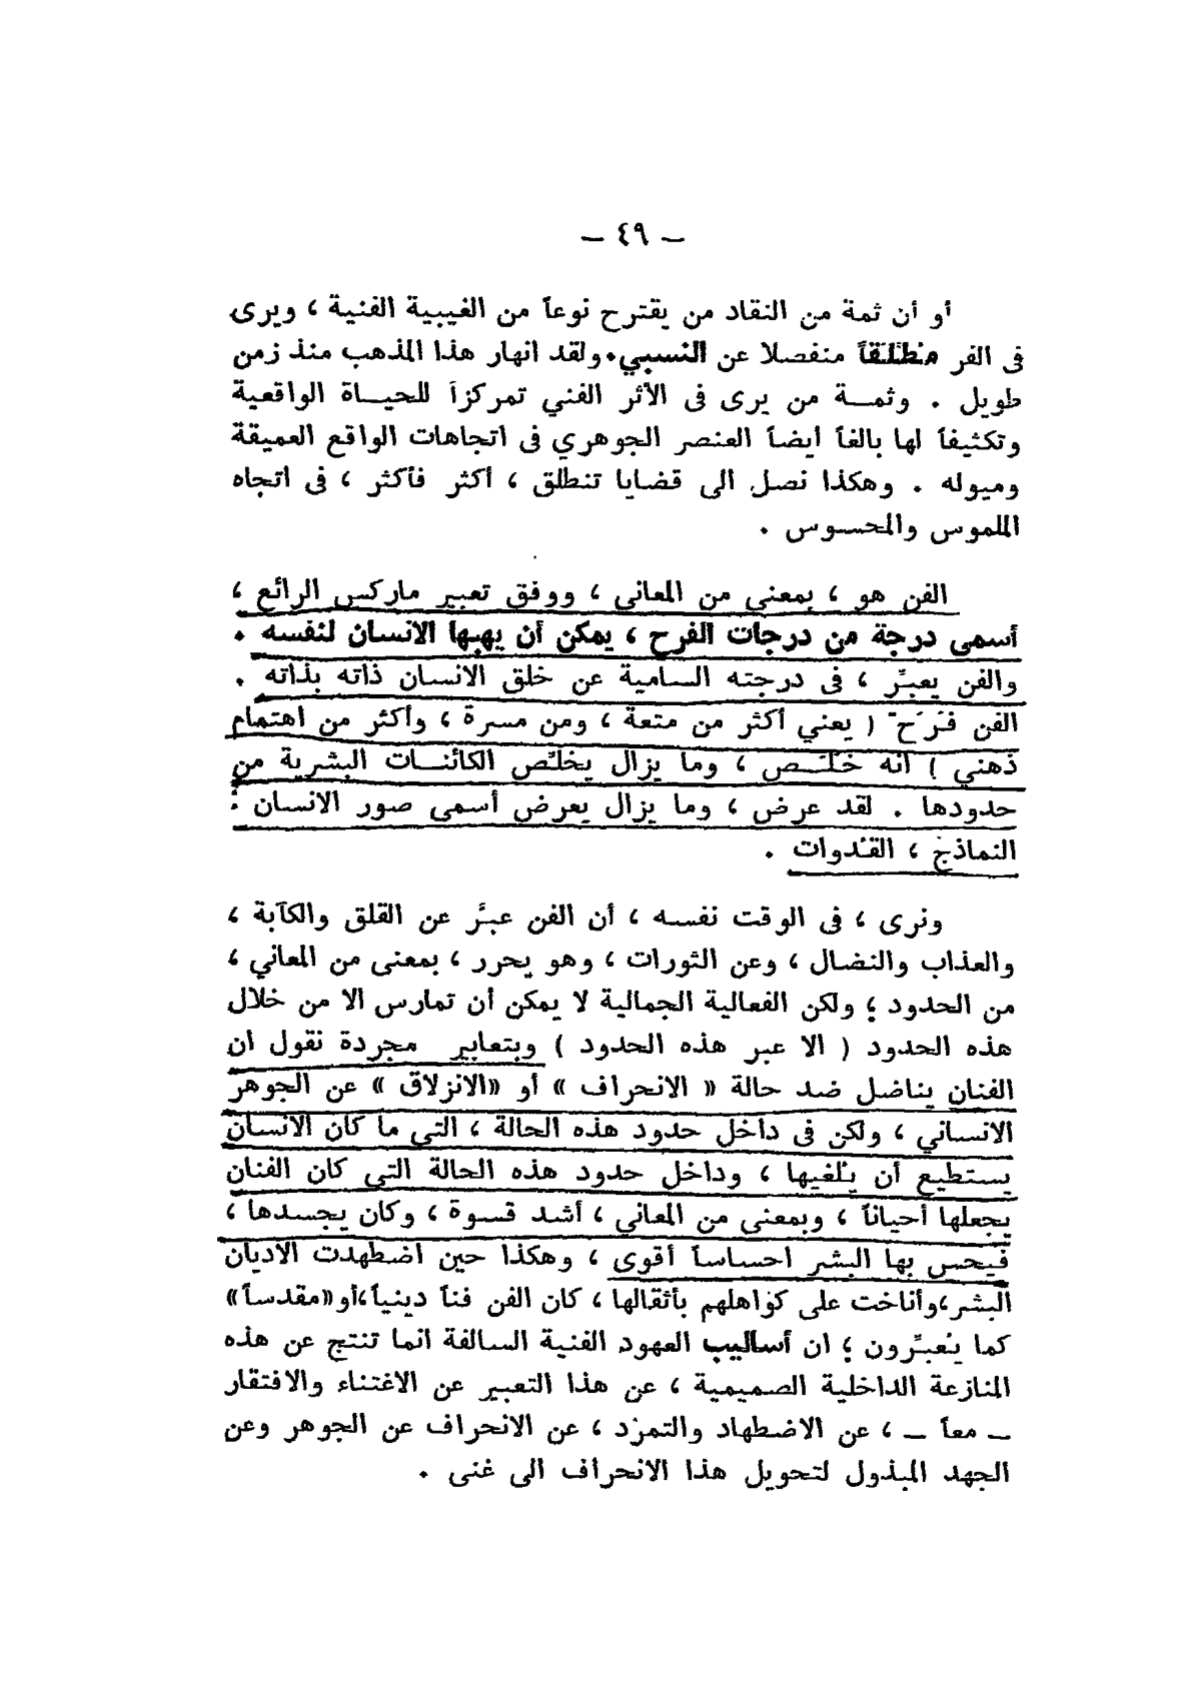 — ٤٩ —
أو أن ثمة من النقاد من يقترح نوعاً من الغيبية الفنية ، ويرى
فى الفر مطلقاً منفصلا عن النسبي. ولقد انهار هذا المذهب منذ زمن
طويل . وثمـــة من يرى فى الأثر الفني تمركزاً للحيـــاة الواقعية
وتكثيفاً لها بالغاً أيضاً العنصر الجوهري فى اتجاهات الواقع العميقة
وميوله . وهكذا نصل الى قضايا تنطلق ، أكثر فأكثر ، فى اتجاه
الملموس والمحسوس .
الفن هو ، بمعنى من المعاني ، ووفق تعبير ماركس الرائع ،
أسمى درجة من درجات الفرح ، يمكن أن يهبها الانسان لنفسه .
والفن يعبِّر ، فى درجته السامية عن خلق الانسان ذاته بذاته .
الفن فَرَح ( يعني أكثر من متعة ، ومن مسرة ، وأكثر من اهتمام
ذهني ) انه خلَّـــص ، وما يزال يخلِّص الكائنـــات البشرية من
حدودها . لقد عرض ، وما يزال يعرض أسمى صور الانسان :
النماذج ، القدوات .
ونرى ، فى الوقت نفسه ، أن الفن عبَّر عن القلق والكآبة ،
والعذاب والنضال ، وعن الثورات ، وهو يحرر ، بمعنى من المعاني ،
من الحدود ؛ ولكن الفعالية الجمالية لا يمكن أن تمارس الا من خلال
هذه الحدود ( الا عبر هذه الحدود ) وبتعابير مجردة نقول ان
الفنان يناضل ضد حالة « الانحراف » أو «الانزلاق » عن الجوهر
الانساني ، ولكن فى داخل حدود هذه الحالة ، التي ما كان الانسان
يستطيع أن يُلغيها ، وداخل حدود هذه الحالة التي كان الفنان
يجعلها أحياناً ، وبمعنى من المعاني ، أشد قسوة ، وكان يجسدها ،
فيحس بها البشر احساساً أقوى ، وهكذا حين اضطهدت الأديان
البشر،وأناخت على كواهلهم بأثقالها ، كان الفن فناً دينياً،أو«مقدساً»
كما يُعبِّرون ؛ ان أساليب العهود الفنية السالفة انما تنتج عن هذه
المنازعة الداخلية الصميمية ، عن هذا التعبير عن الاغتناء والافتقار
— معاً — ، عن الاضطهاد والتمرُد ، عن الانحراف عن الجوهر وعن
الجهد المبذول لتحويل هذا الانحراف الى غنى .